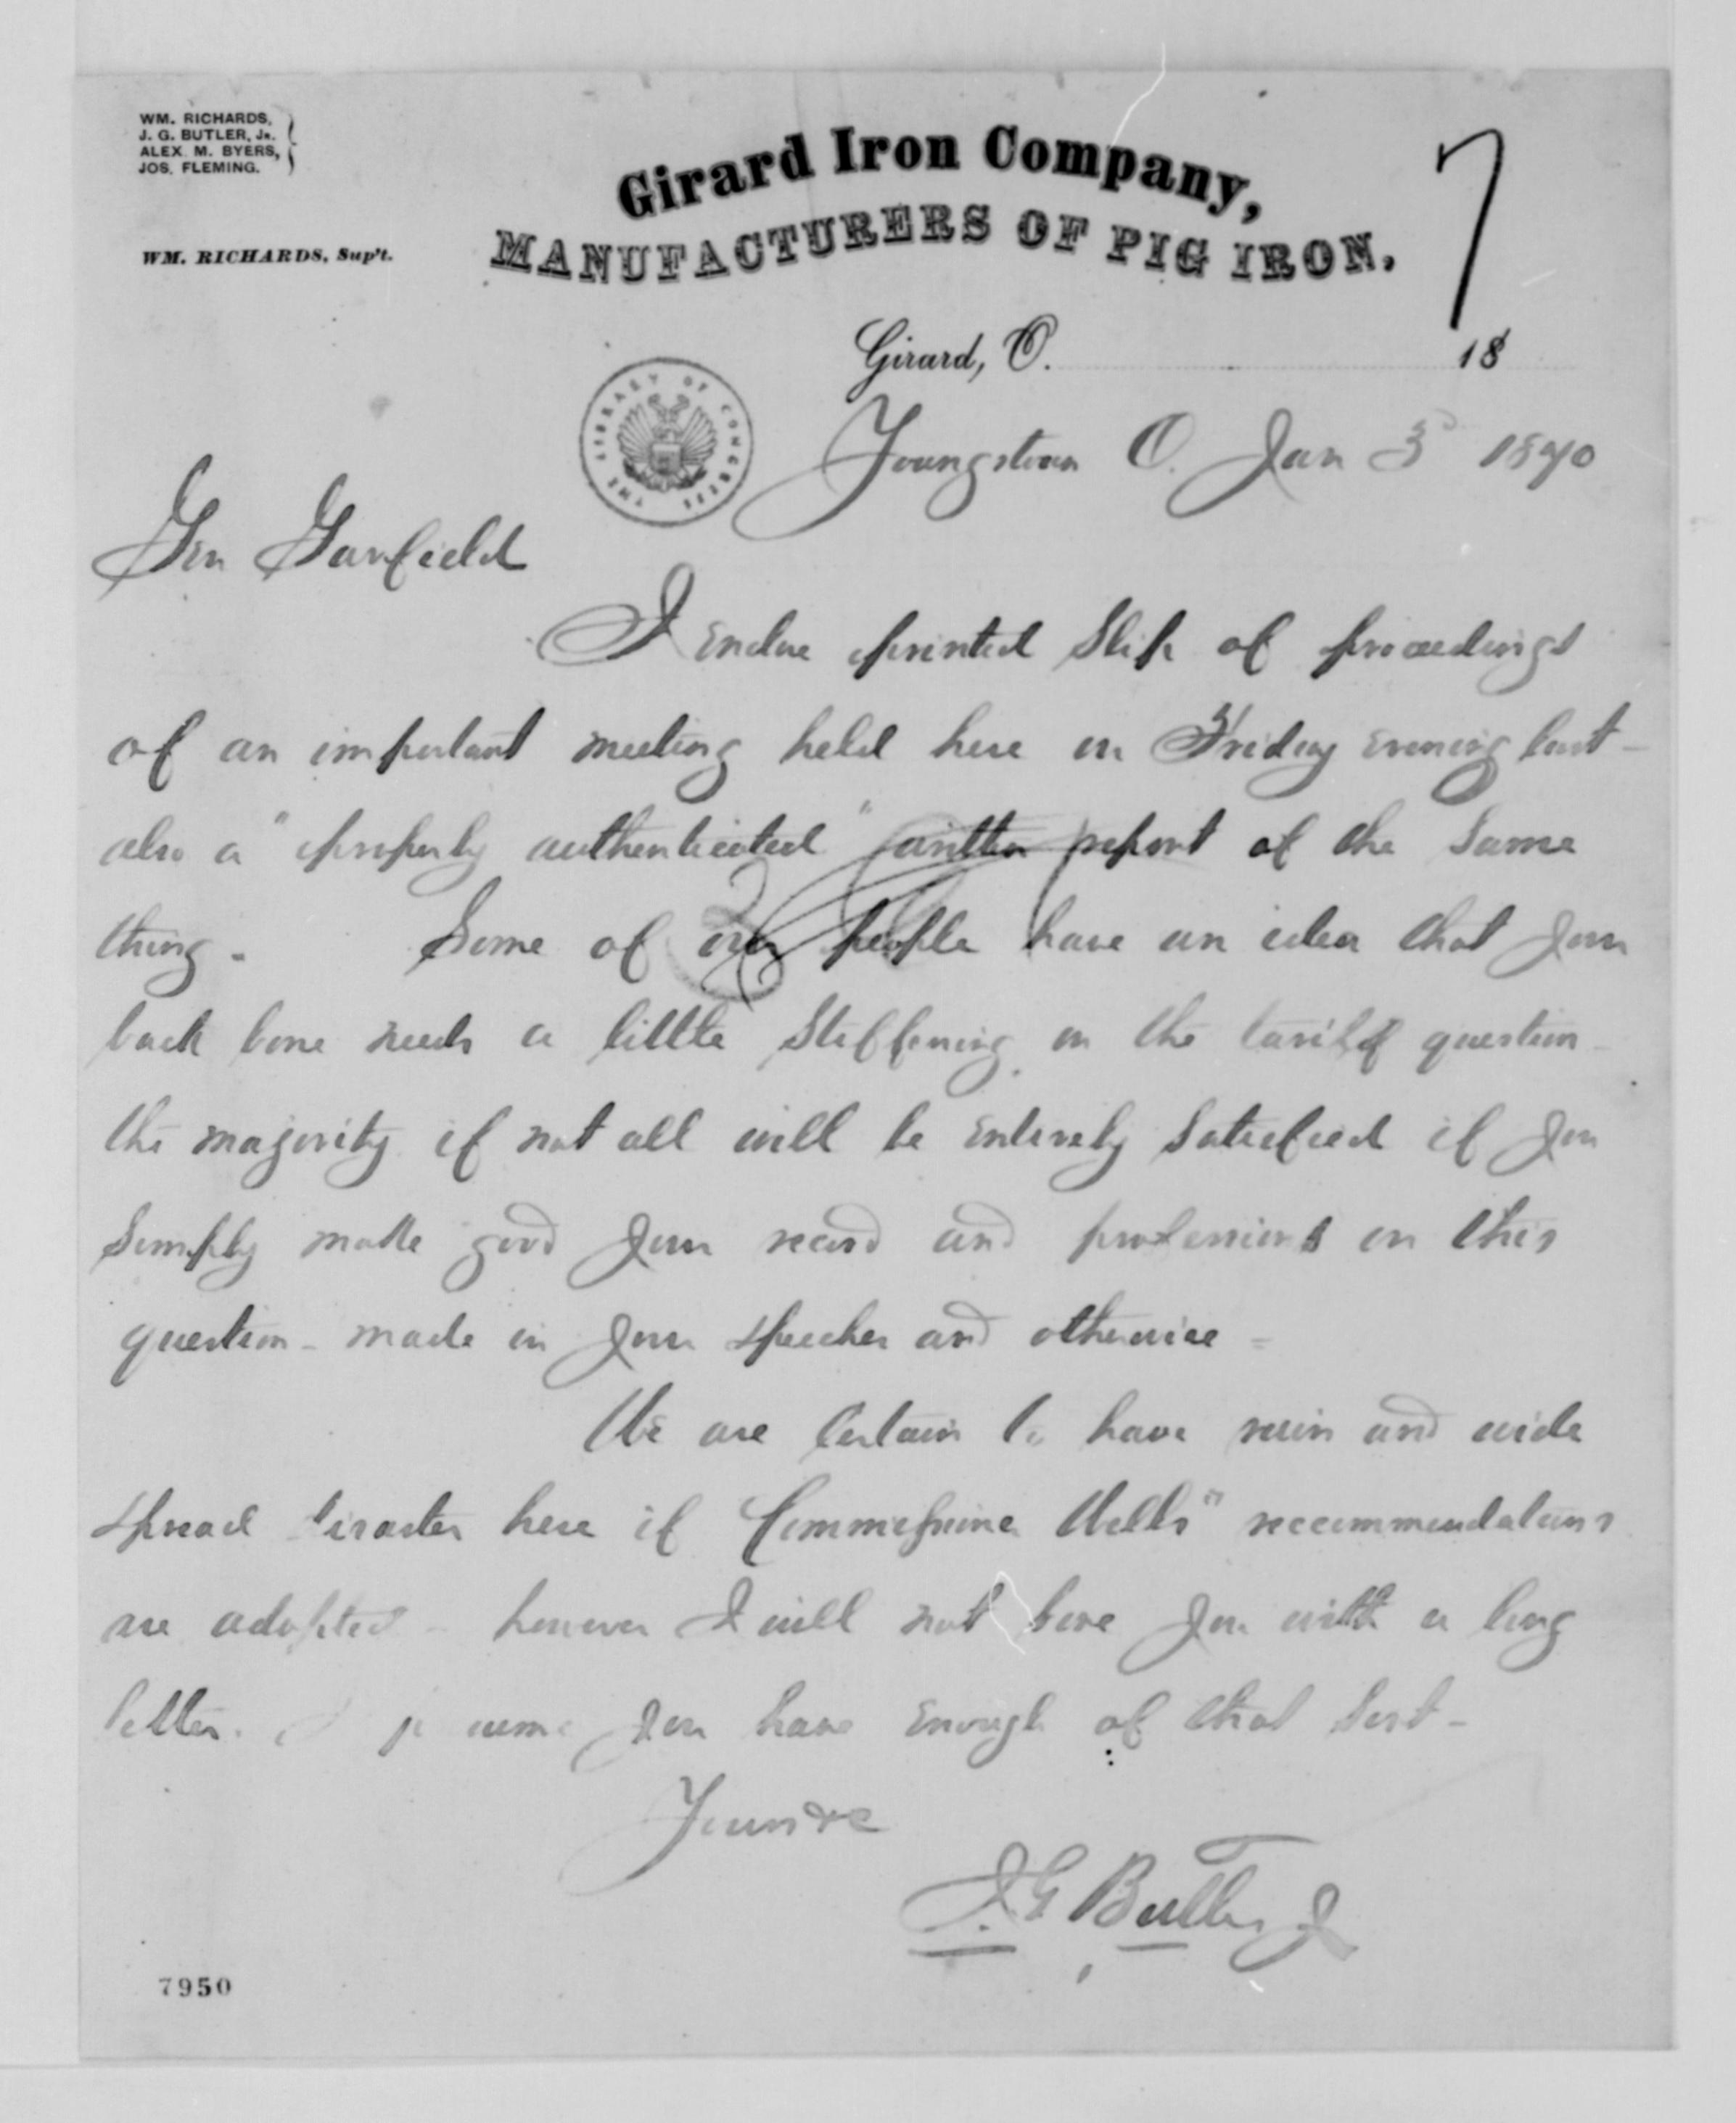 WM. RICHARDS,
J. G. BUTLER, Jr.
ALEX. M. BYERS,
JOS. FLEMING.
WM. RICHARDS, Sup't.
Girard Iron Company,
MANUFACTURERS OF PIG IRON.
7
Girard, O. 18
THE LIBRARY OF CONGRESS
Youngstown O. Jan 3 1870
Gen Garfield
I enclose printed Slip of proceedings
of an important meeting held here on Friday evening last -
also a "properly authenticated" written report of the Same
thing - Some of our people have an idea that your
back bone needs a little Stiffening on the tariff question -
the majority if not all will be entirely Satisfied if you
Simply make good your record and professions on this
question - made in your speeches and otherwise =
We are Certain to have ruin and wide
spread disaster here if Commissioner Wells" reccommendations
are adopted - however I will not bore you with a long
letter. I presume you have enough of that Sort -
Yours &c
J. G Butler Jr
7950